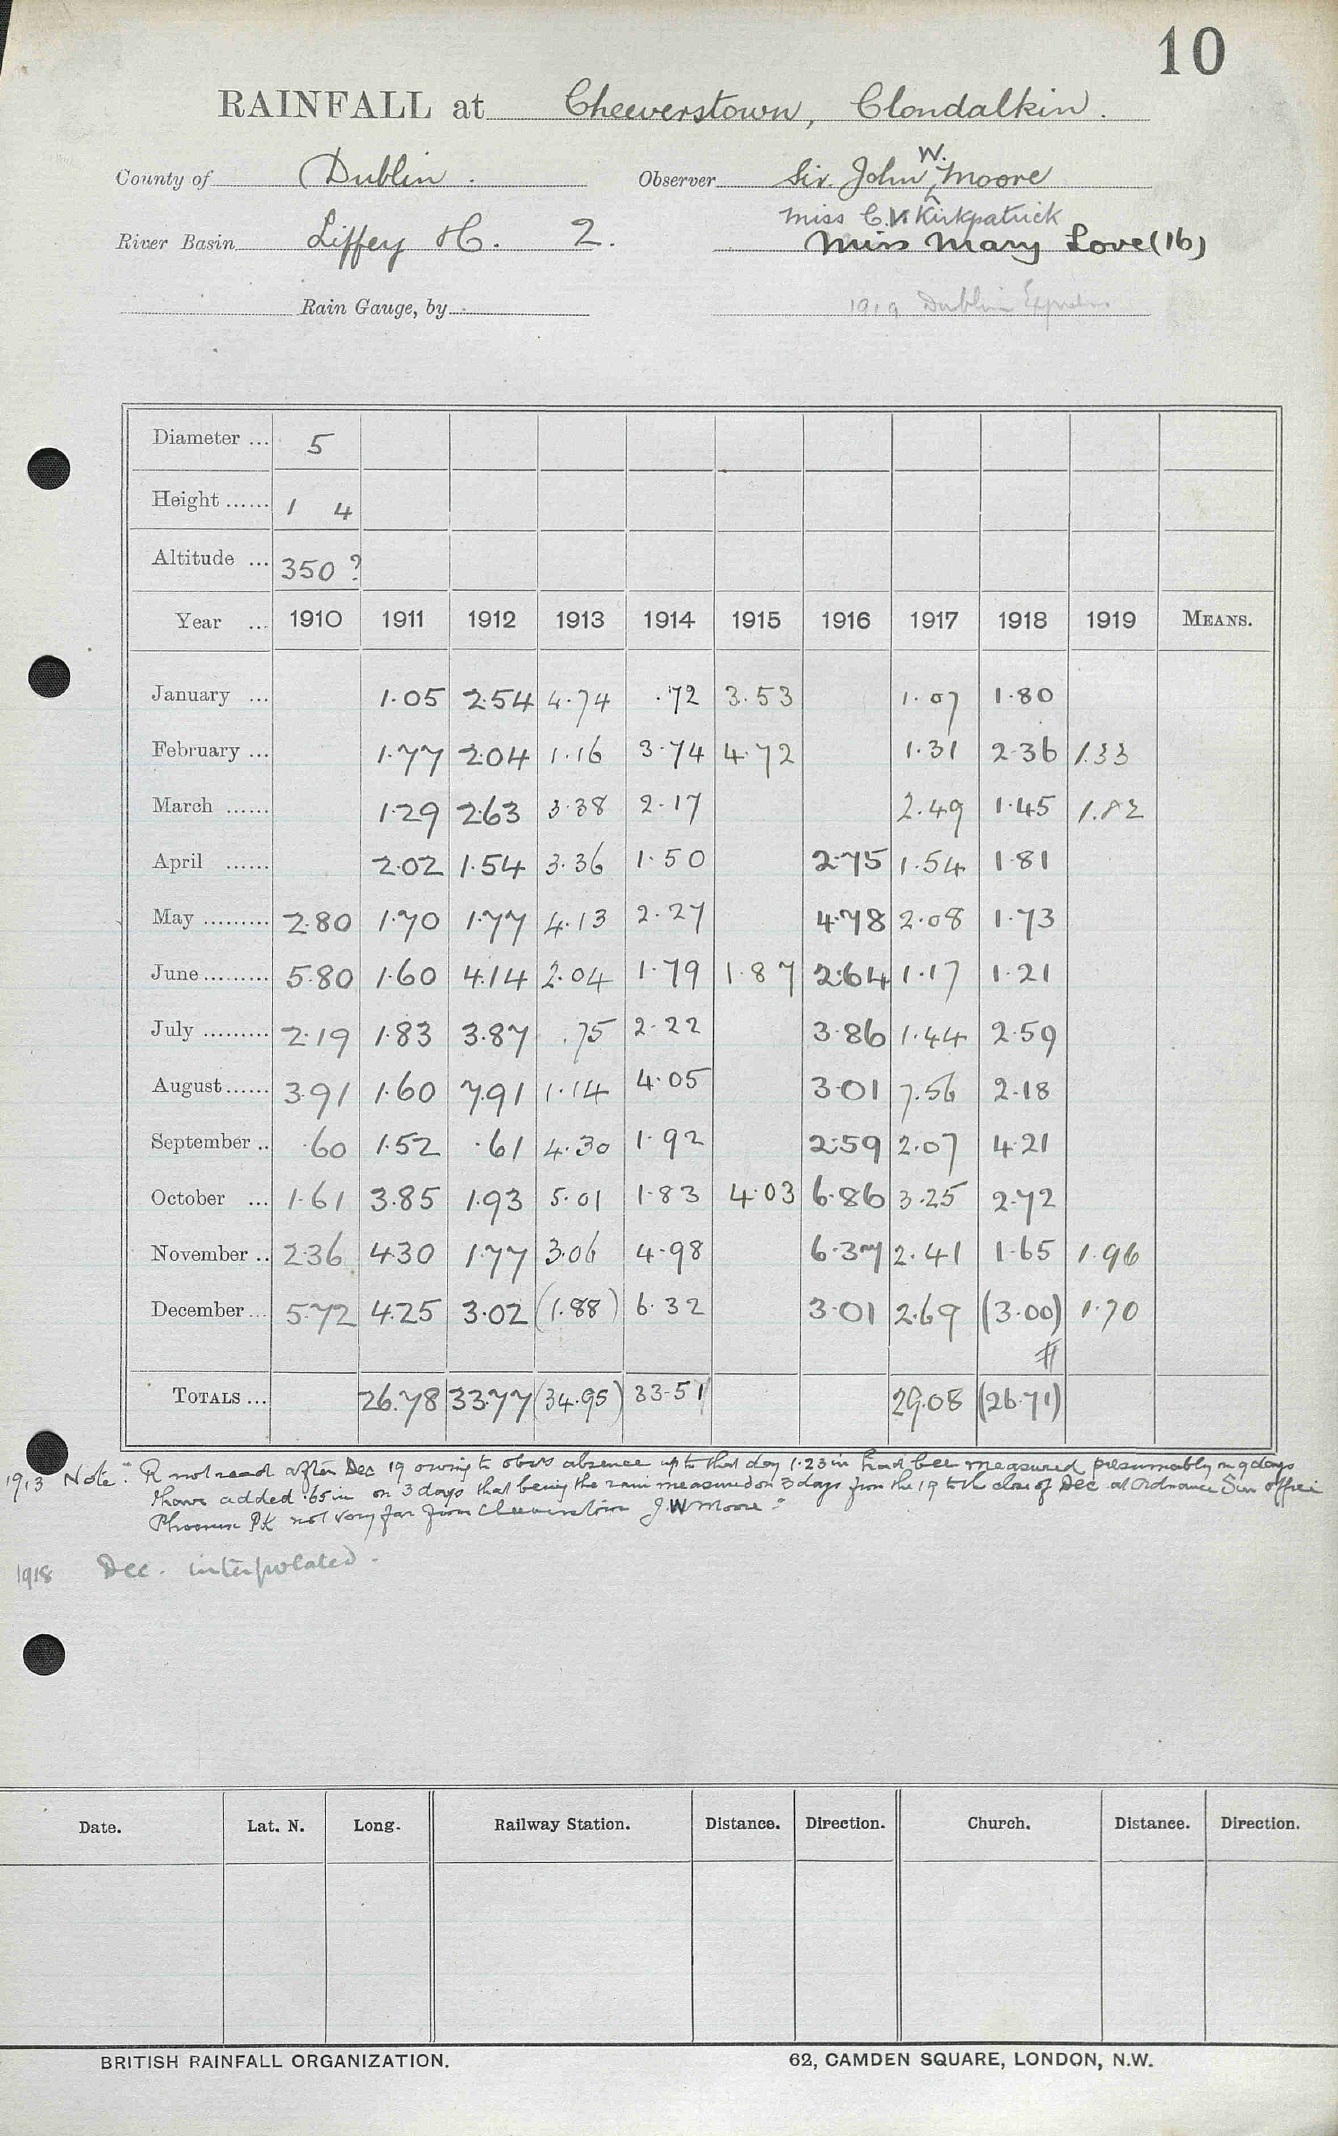 10
RAINFALL at Cheeverstown, Clondalkin.
County of Dublin. Observer Sir John W. Moore
Miss C. Kirkpatrick
River Basin Liffey H. 2. Miss Mary Love (16)
Rain Gauge, by 1919 Dublin Express
Diameter ... 5
Height ...... 1 4
Altitude ... 350 ?
Year ... 1910 1911 1912 1913 1914 1915 1916 1917 1918 1919 MEANS.
January ... 1.05 2.54 4.74 .72 3.53 1.07 1.80
February ... 1.77 2.04 1.16 3.74 4.72 1.31 2.36 1.33
March ...... 1.29 2.63 3.38 2.17 2.49 1.45 1.82
April ...... 2.02 1.54 3.36 1.50 2.75 1.54 1.81
May ......... 2.80 1.70 1.77 4.13 2.27 4.78 2.08 1.73
June ......... 5.80 1.60 4.14 2.04 1.79 1.87 2.64 1.17 1.21
July ......... 2.19 1.83 3.87 .75 2.22 3.86 1.44 2.59
August ...... 3.91 1.60 7.91 1.14 4.05 3.01 7.56 2.18
September .. .60 1.52 .61 4.30 1.92 2.59 2.07 4.21
October ... 1.61 3.85 1.93 5.01 1.83 4.03 6.86 3.25 2.72
November .. 2.36 4.30 1.77 3.06 4.98 6.37 2.41 1.65 1.96
December ... 5.72 4.25 3.02 (1.88) 6.32 3.01 2.69 (3.00) 1.70
#
TOTALS ... 26.78 33.77 (34.95) 33.51 29.08 (26.71)
1913 Note "R not read after Dec 19 owing to obs's absence up to that day 1.23 in had been measured presumably on 9 days
I have added .65 in on 3 days that being the rain measured on 3 days from the 19 to the close of Dec at Ordnance Sur office
Phoenix Pk not very far from Cheeverstown J.W Moore."
1918 Dec. interpolated.
Date. Lat. N. Long. Railway Station. Distance. Direction. Church. Distance. Direction.
BRITISH RAINFALL ORGANIZATION. 62, CAMDEN SQUARE, LONDON, N.W.